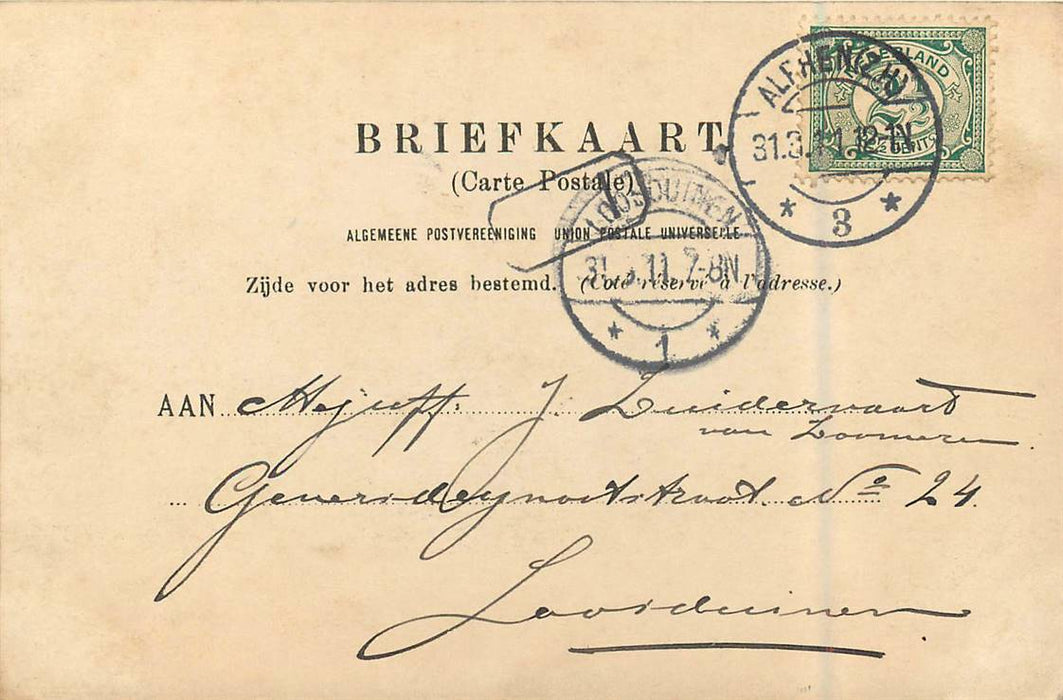 BRIEFKAART
(Carte Postale)
ALGEMEENE POSTVEREENIGING UNION POSTALE UNIVERSELLE
Zijde voor het adres bestemd. (Coté réservé à l'adresse.)
NEDERLAND
2½
CENTS
ALFHEN (Z.H)
31.3.11.12-1N
3
LOOSDUINEN
31.3.11.7-8N
1
AAN Mejuff. J. Zuidervaart
van Zoomeren
Geversdeynootstraat No 24.
Loosduinen